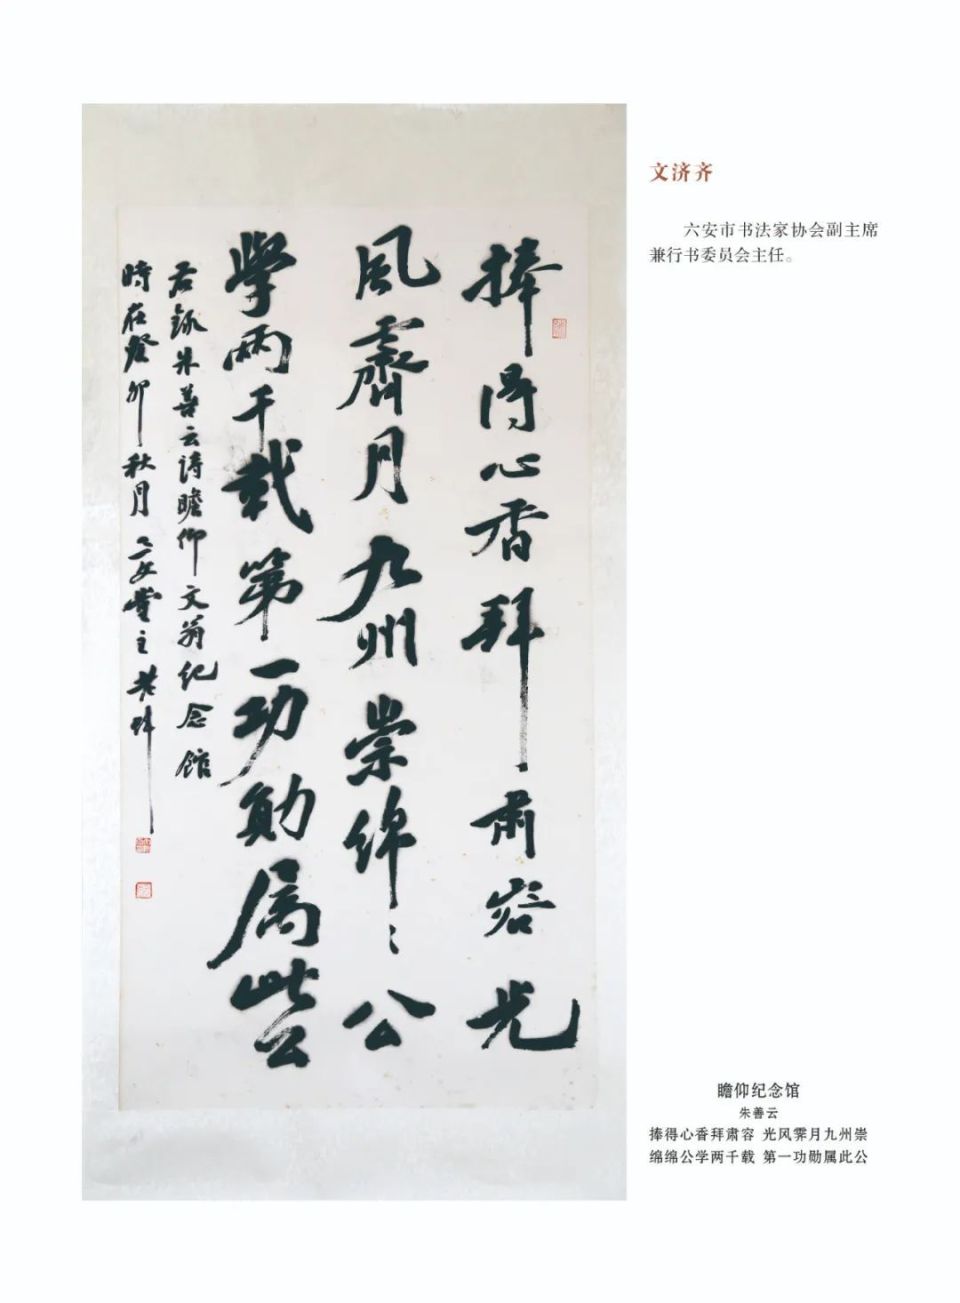 捧得心香拜肃容光
風霽月九州崇绵〻公
學兩千载第一功勛属此公
右錄朱善云詩瞻仰文翁纪念館
時在癸卯秋月
文济齐
六安市书法家协会副主席
兼行书委员会主任。
瞻仰纪念馆
朱善云
捧得心香拜肃容 光风霁月九州崇
绵绵公学两千载 第一功勋属此公